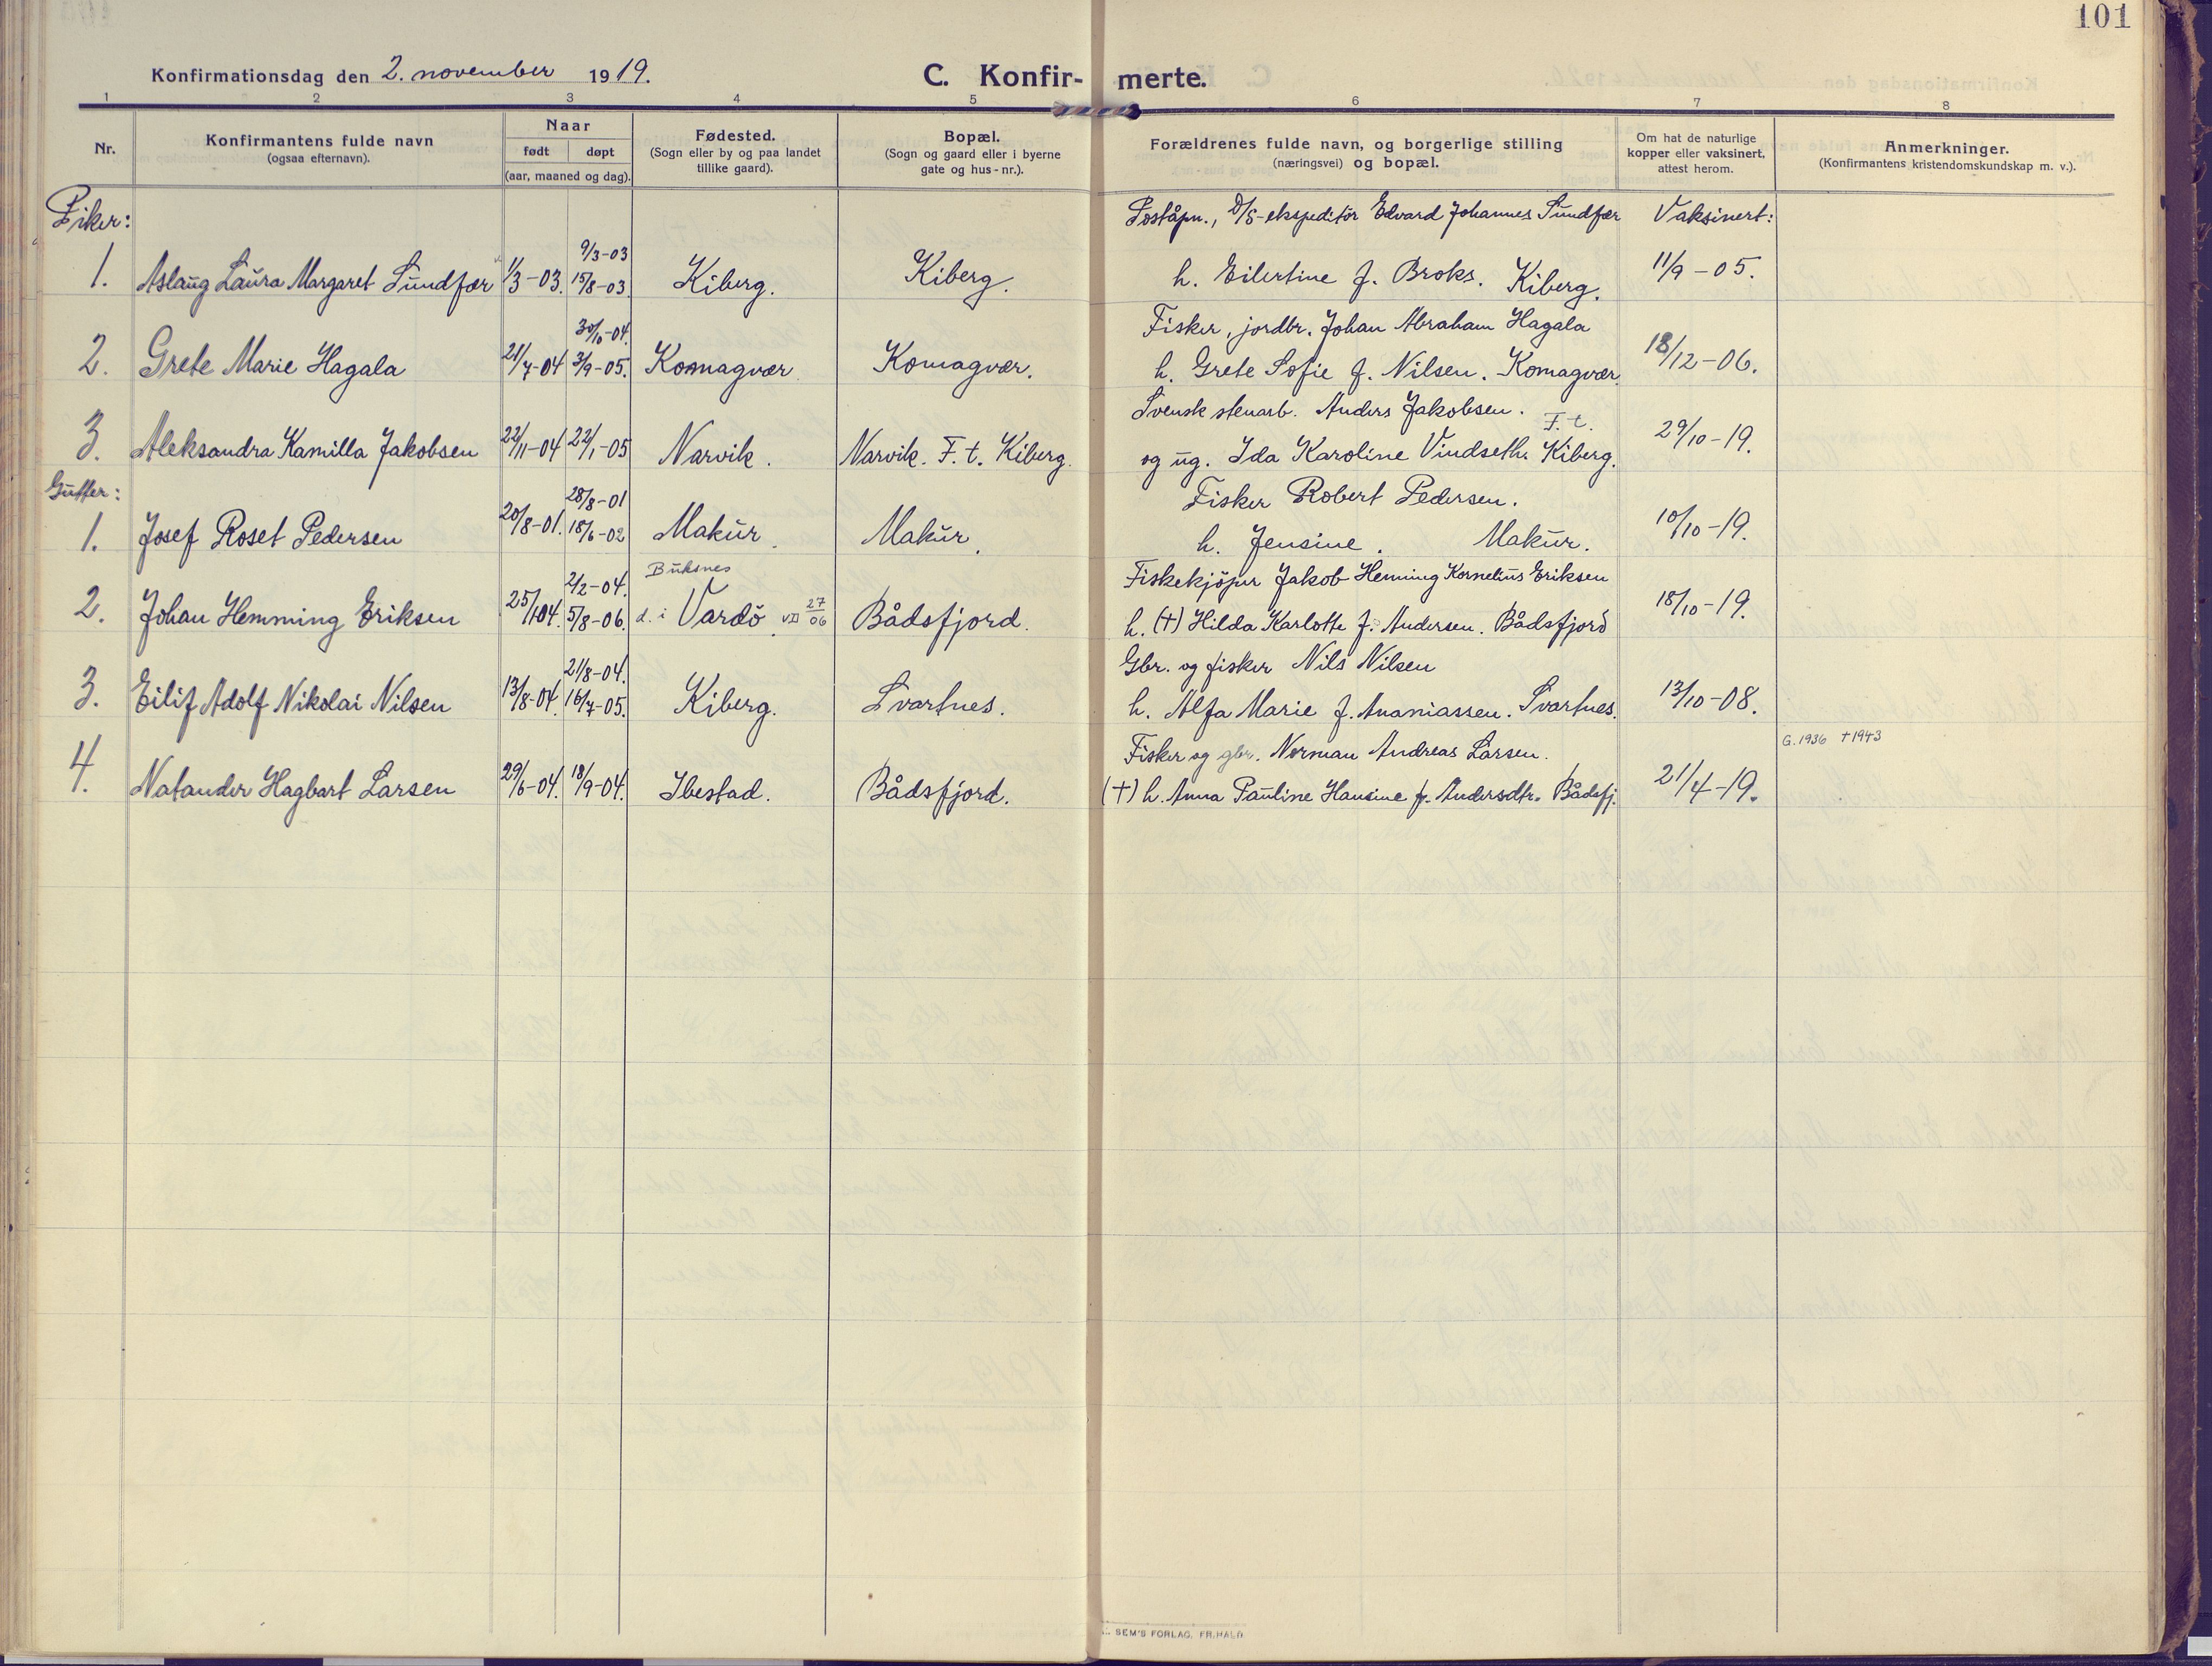 101
Konfirmationsdag den 2. november 1919.
C. Konfir- merte.
1 2 3 4 5 6 7 8
Nr.
Konfirmantens fulde navn
(ogsaa efternavn).
Naar
født døpt
(aar, maaned og dag).
Fødested.
(Sogn eller by og paa landet
tillike gaard).
Bopæl.
(Sogn og gaard eller i byerne
gate og hus-nr.).
Forældrenes fulde navn, og borgerlige stilling
(næringsvei) og bopæl.
Om hat de naturlige
kopper eller vaksinert,
attest herom.
Anmerkninger.
(Konfirmantens kristendomskundskap m. v.).
Piker:
Poståpn., D/S-ekspeditör Edvard Johannes Sundfær Vaksinert:
9/3-03
1. Aslaug Laura Margaret Sundfær 1/3-03. 15/8-03. Kiberg. Kiberg. h. Eilertine f. Broks. Kiberg. 11/9-05.
30/10-04. Fisker, jordbr. Johan Abraham Hagala
2. Grete Marie Hagala 21/7-04 3/9-05. Komagvær Komagvær. h. Grete Sofie f. Nilsen. Komagvær. 18/12-06.
Svensk stenarb. Anders Jakobsen. F. t.
3. Aleksandra Kamilla Jakobsen 22/11-04 22/1-05 Narvik. Narvik. F. t. Kiberg. og ug. Ida Karoline Vindseth. Kiberg. 29/10-19.
Gutter:
28/8-01 Fisker Robert Pedersen.
1. Josef Roset Pedersen 20/8-01. 18/6-02 Makur. Makur. h. Jensine. Makur. 10/10-19.
2/2-04. Buksnes Fiskekjöper Jakob Heming Kornelius Eriksen
2. Johan Hemming Eriksen 25/1 04. 5/8-06. d. i Vardö VII 27/06 Bådsfjord. h. (†) Hilda Karlotte f. Andersen. Bådsfjord 18/10-19.
21/8-04. Gbr. og fisker Nils Nilsen
3. Eilif Adolf Nikolai Nilsen 13/8-04. 16/7-05. Kiberg. Svartnes. h. Alfa Marie f. Ananiassen. Svartnes. 13/10-08.
Fisker og gbr. Norman Andreas Larsen. G. 1936 †1943
4. Natander Hagbart Larsen 29/6-04. 18/9-04. Ibestad. Bådsfjord. (†) h. Anna Pauline Hansine f. Andersdtr. Bådsfj. 21/4-19.
SEM'S FORLAG, FR. HALD